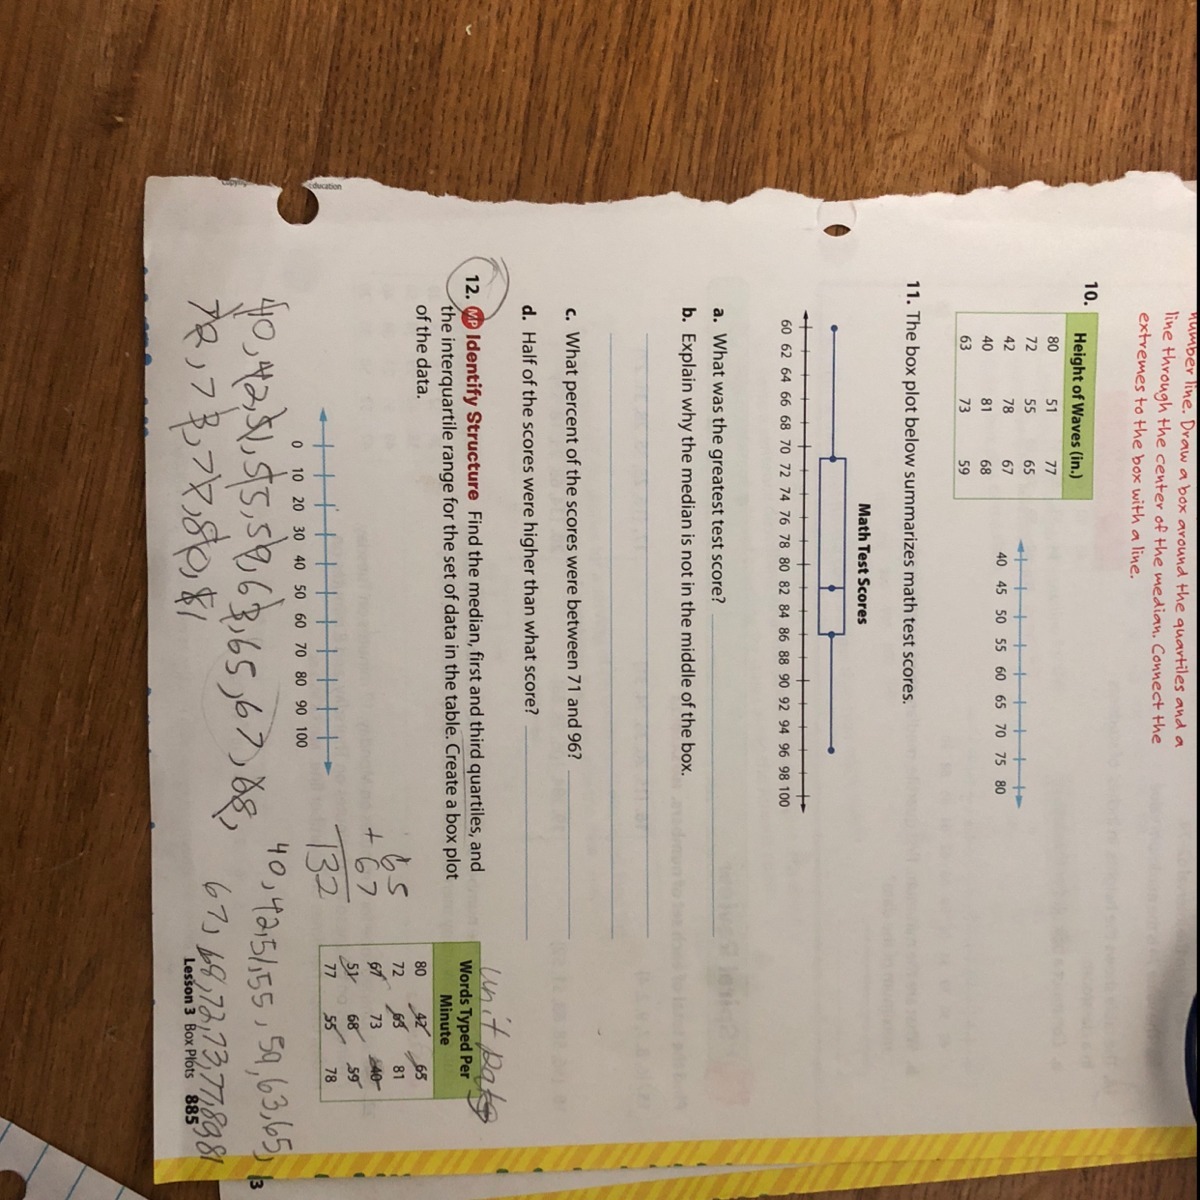 number line. Draw a box around the quartiles and a
line through the center of the median. Connect the
extremes to the box with a line.
10.
Height of Waves (in.)
80 51 77
72 55 65
42 78 67
40 81 68
63 73 59
40 45 50 55 60 65 70 75 80
11. The box plot below summarizes math test scores.
Math Test Scores
60 62 64 66 68 70 72 74 76 78 80 82 84 86 88 90 92 94 96 98 100
a. What was the greatest test score?
b. Explain why the median is not in the middle of the box.
c. What percent of the scores were between 71 and 96?
d. Half of the scores were higher than what score?
12. MP Identify Structure Find the median, first and third quartiles, and
the interquartile range for the set of data in the table. Create a box plot
of the data.
unit
Words Typed Per
Minute
80 42 65
72 63 81
67 73 40
51 68 59
77 55 78
65
+ 67
132
0 10 20 30 40 50 60 70 80 90 100
40, 42, 51, 55, 59, 63, 65, 67, 68,
72, 73, 77, 80, 81
40, 42, 51, 55, 59, 63, 65,
67, 68, 72, 73, 77, 8981
Lesson 3 Box Plots 885
ducation
3